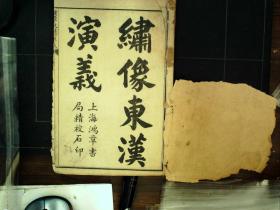 繡像東漢
演義
上海鴻章書
局精校石印